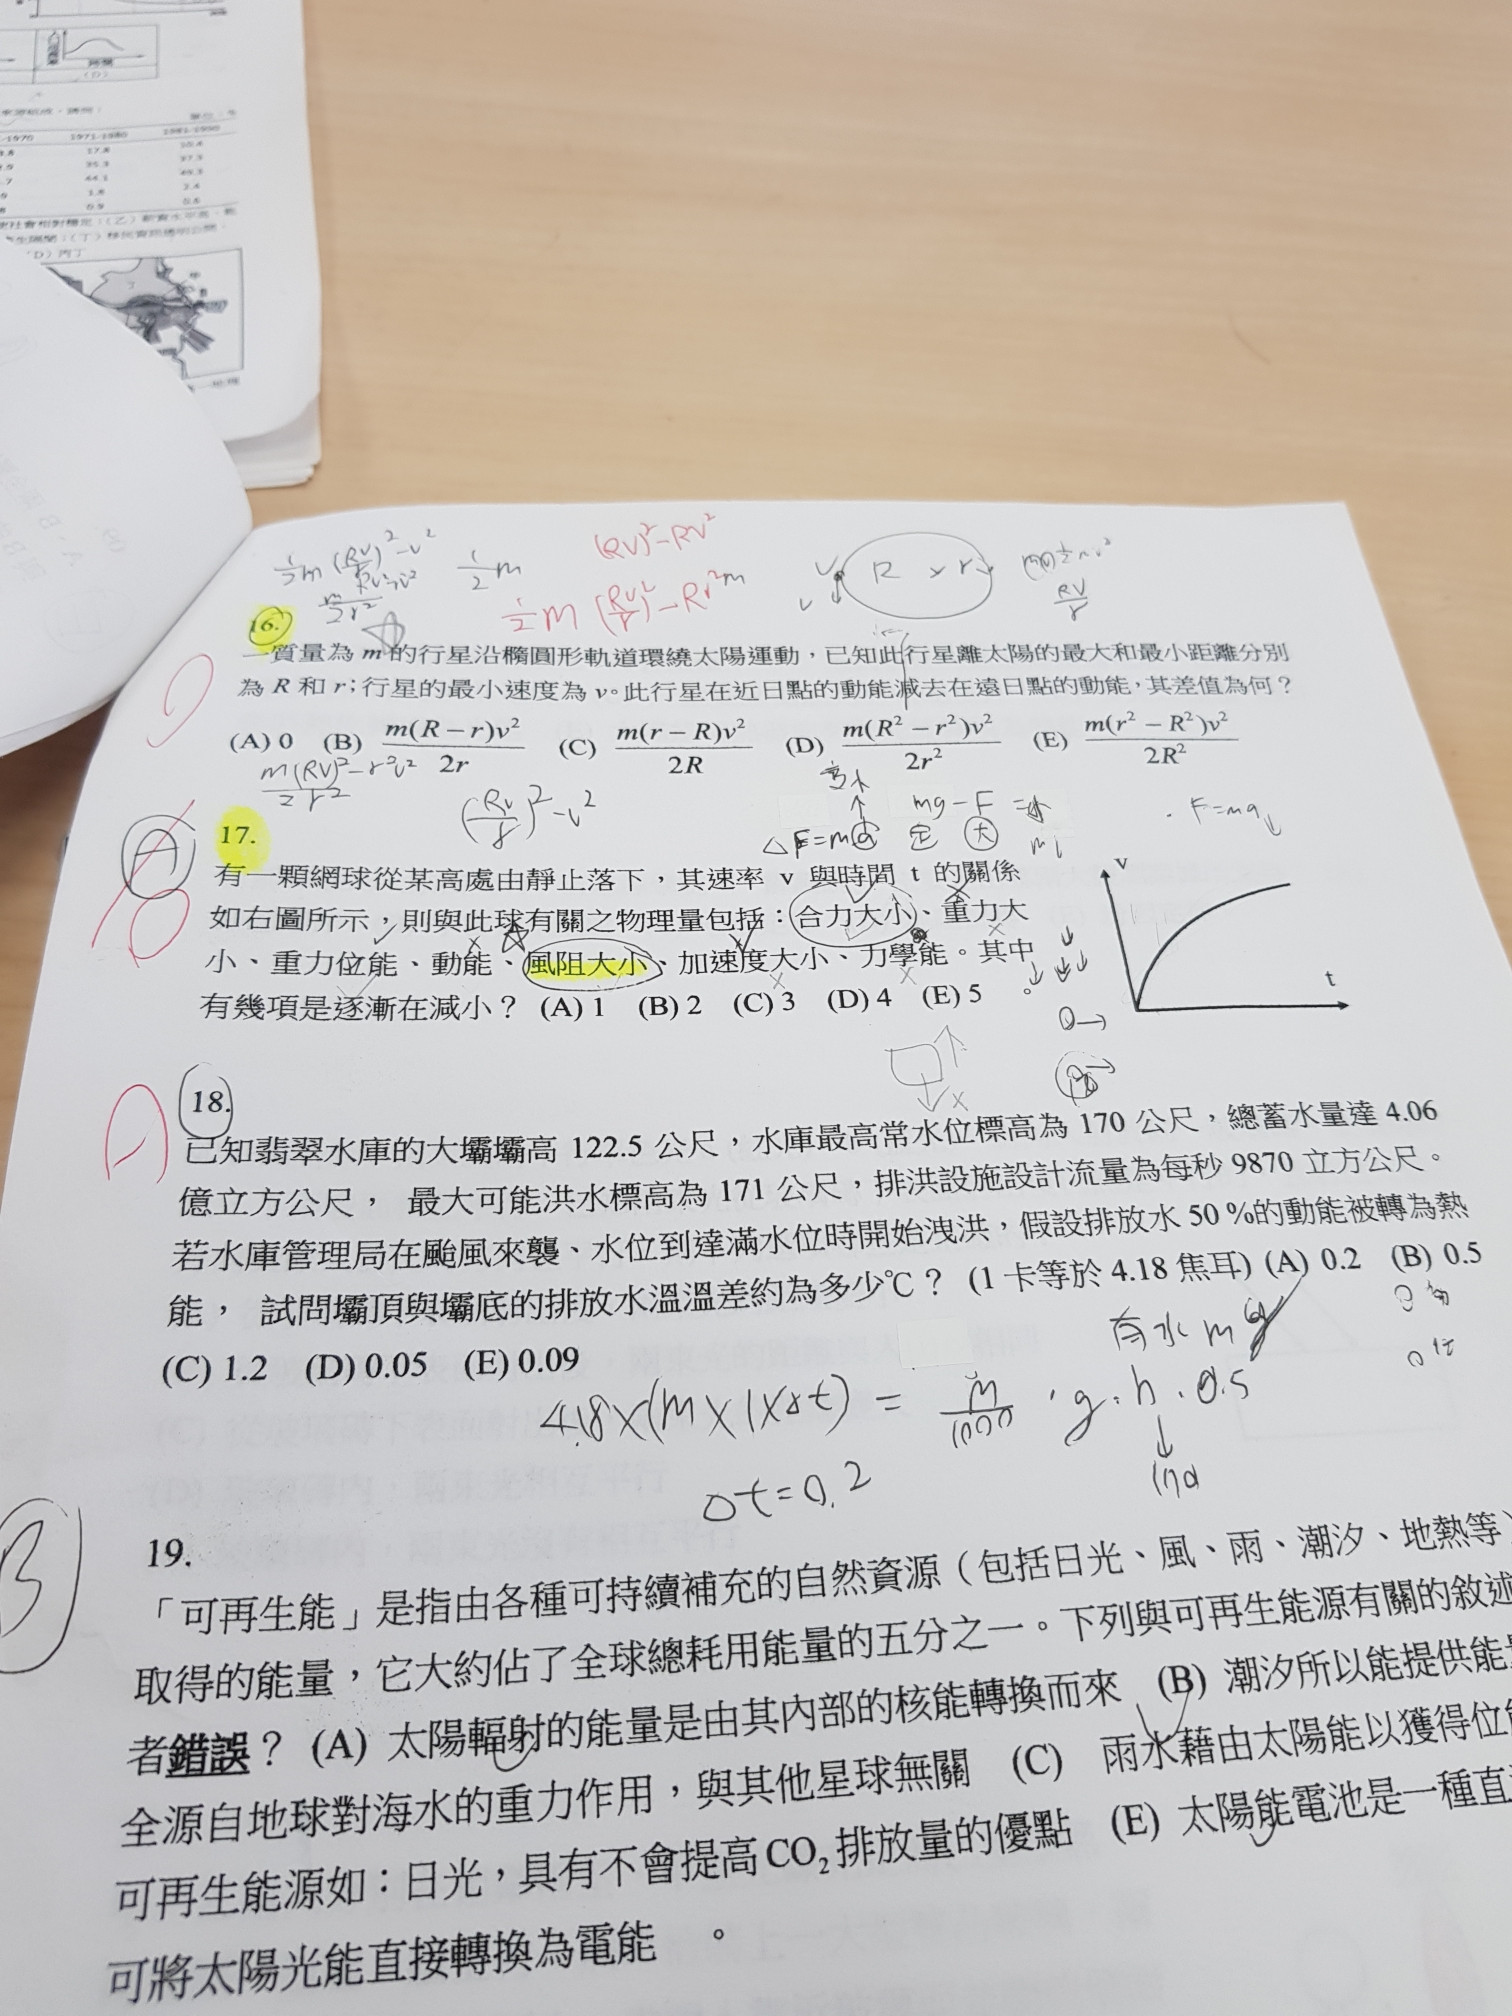 (D)
單位：%
1970
1971-1980
1981-1990
17.8
35.3
37.3
44.1
49.3
1.8
2.4
0.9
0.6
(D) 丙丁
(RV)²-RV²
½m
R r
V
RV/r
½m (RV/r)²-Rr²m
16.
一質量為 m 的行星沿橢圓形軌道環繞太陽運動，已知此行星離太陽的最大和最小距離分別
為 R 和 r；行星的最小速度為 v。此行星在近日點的動能減去在遠日點的動能，其差值為何？
(A) 0 (B) m(R－r)v²/2r (C) m(r－R)v²/2R (D) m(R²－r²)v²/2r² (E) m(r²－R²)v²/2R²
m(RV)²-r²v²/2r²
(RV/r)²-v²
mg-F
F=ma
定 大
F=ma↓
A
17.
有一顆網球從某高處由靜止落下，其速率 v 與時間 t 的關係
如右圖所示，則與此球有關之物理量包括：合力大小、重力大
小、重力位能、動能、風阻大小、加速度大小、力學能。其中
有幾項是逐漸在減小？ (A) 1 (B) 2 (C) 3 (D) 4 (E) 5
v
t
18.
已知翡翠水庫的大壩壩高 122.5 公尺，水庫最高常水位標高為 170 公尺，總蓄水量達 4.06
億立方公尺， 最大可能洪水標高為 171 公尺，排洪設施設計流量為每秒 9870 立方公尺。
若水庫管理局在颱風來襲、水位到達滿水位時開始洩洪，假設排放水 50 %的動能被轉為熱
能， 試問壩頂與壩底的排放水溫溫差約為多少℃？ (1 卡等於 4.18 焦耳) (A) 0.2 (B) 0.5
(C) 1.2 (D) 0.05 (E) 0.09
有水 m g
4.18×(m×1×Δt) = m/1000 · g · h · 0.5
170
Δt=0.2
B
19.
「可再生能」是指由各種可持續補充的自然資源（包括日光、風、雨、潮汐、地熱等）
取得的能量，它大約佔了全球總耗用能量的五分之一。下列與可再生能源有關的敘述
者錯誤？ (A) 太陽輻射的能量是由其內部的核能轉換而來 (B) 潮汐所以能提供能量
全源自地球對海水的重力作用，與其他星球無關 (C) 雨水藉由太陽能以獲得位能
可再生能源如：日光，具有不會提高 CO₂ 排放量的優點 (E) 太陽能電池是一種直
可將太陽光能直接轉換為電能 。